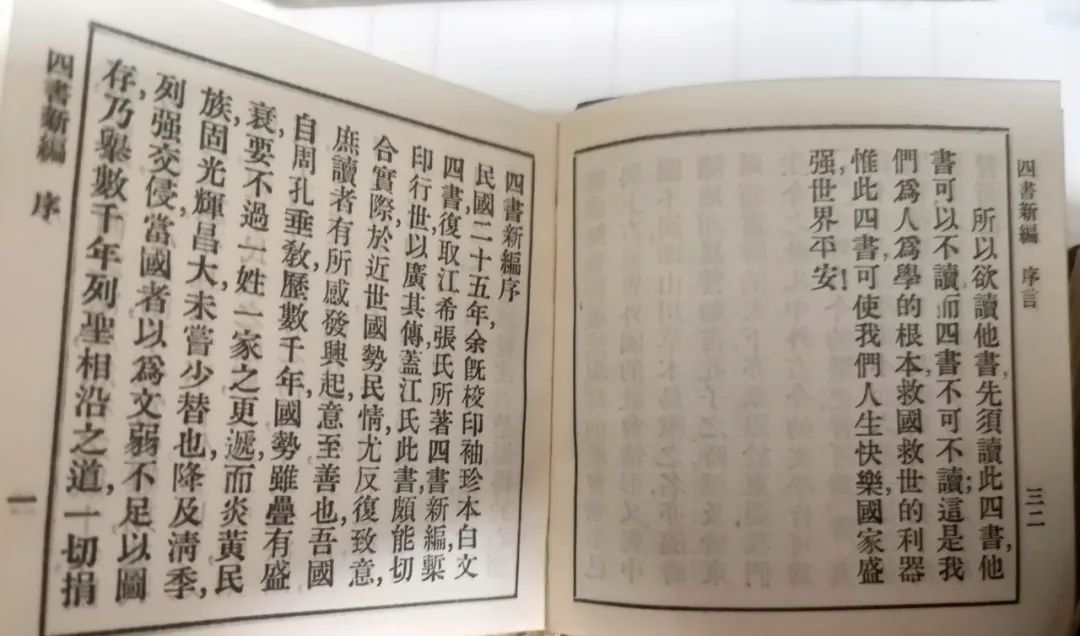 四書新編 序言 三二
所以欲讀他書,先須讀此四書,他
書可以不讀,而四書不可不讀;這是我
們爲人爲學的根本,救國救世的利器
惟此四書,可使我們人生快樂,國家盛
强,世界平安!
四書新編序
民國二十五年,余旣校印袖珍本白文
四書,復取江希張氏所著四書新編,槧
印行世,以廣其傳,蓋江氏此書,頗能切
合實際,於近世國勢民情,尤反復致意,
庶讀者有所感發興起,意至善也,吾國
自周孔垂敎,歷數千年,國勢雖疊有盛
衰,要不過一姓一家之更遞,而炎黃民
族,固光輝昌大,未嘗少替也,降及淸季,
列强交侵,當國者以爲文弱不足以圖
存,乃舉數千年列聖相沿之道,一切捐
四書新編 序 一